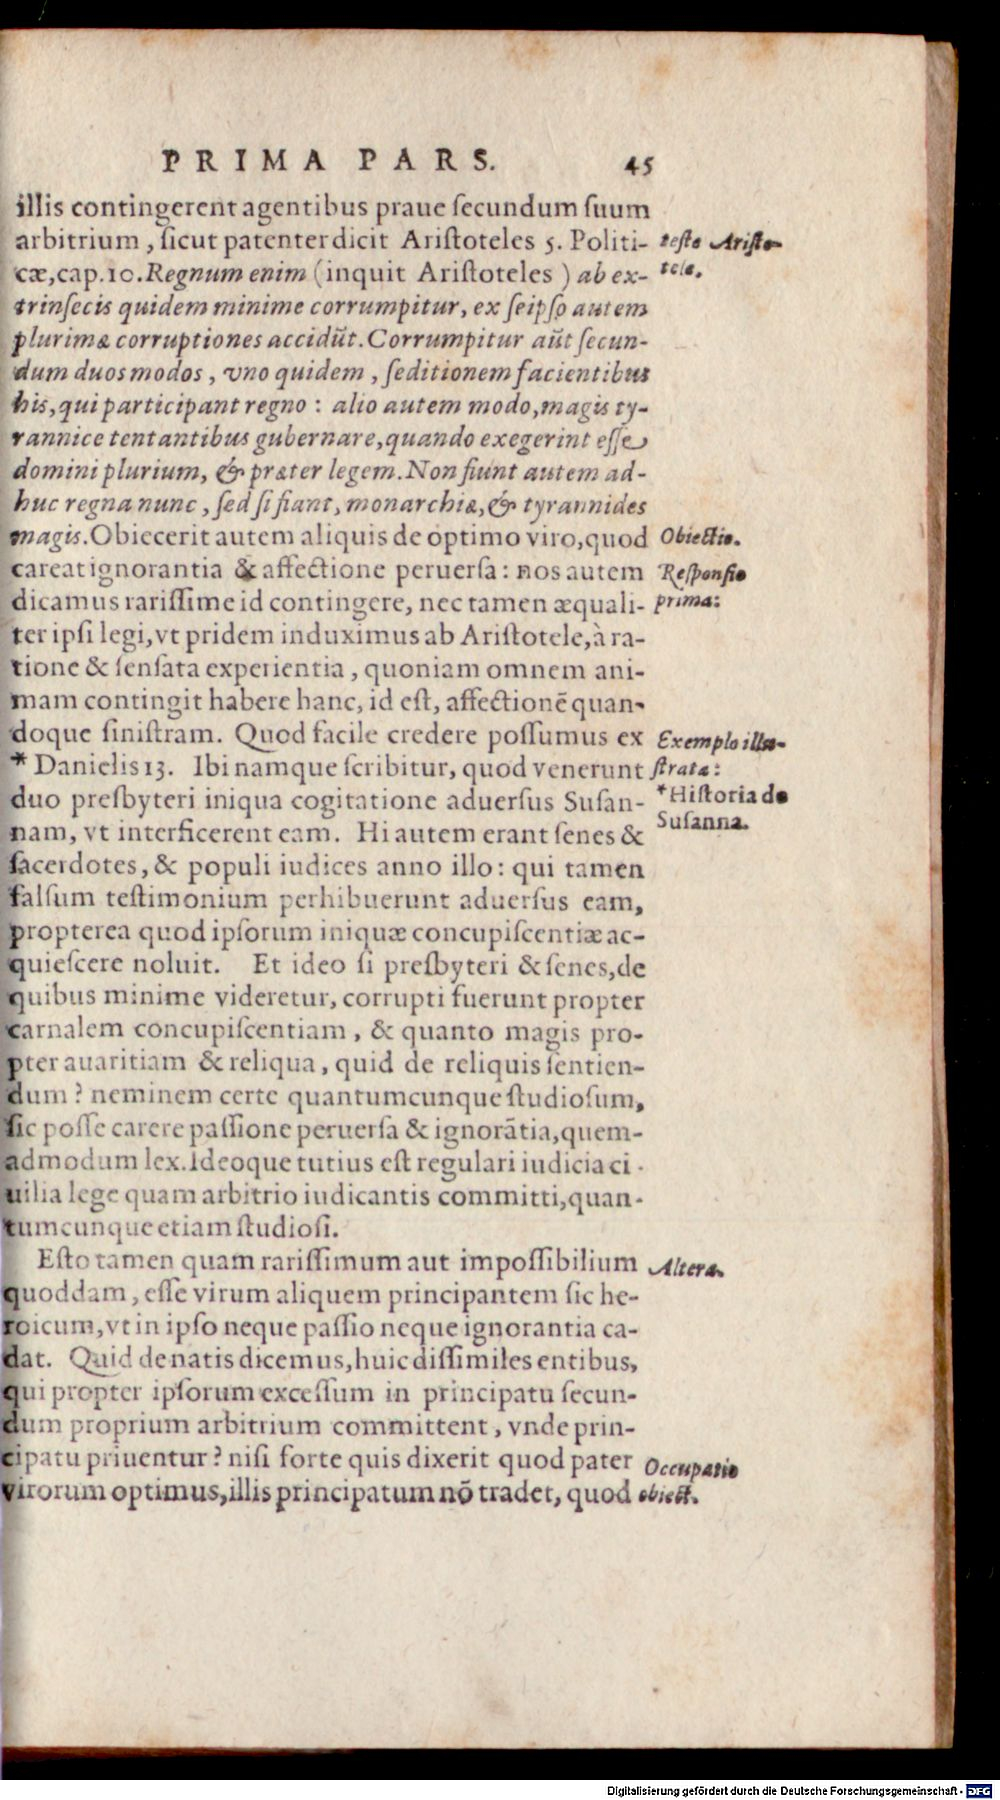 PRIMA PARS. 45
illis contingerent agentibus praue ſecundum ſuum
arbitrium, ſicut patenter dicit Ariſtoteles 5. Politi-
cæ, cap. 10. Regnum enim (inquit Ariſtoteles) ab ex-
trinſecis quidem minime corrumpitur, ex ſeipſo autem
plurimæ corruptiones accidūt. Corrumpitur aūt ſecun-
dum duos modos, vno quidem, ſeditionem facientibus
his, qui participant regno: alio autem modo, magis ty-
rannice tentantibus gubernare, quando exegerint eſſe
domini plurium, & præter legem. Non fiunt autem ad-
huc regna nunc, ſed ſi fiant, monarchiæ, & tyrannides
magis. Obiecerit autem aliquis de optimo viro, quod
careat ignorantia & affectione peruerſa: nos autem
dicamus rariſſime id contingere, nec tamen æquali-
ter ipſi legi, vt pridem induximus ab Ariſtotele, à ra-
tione & ſenſata experientia, quoniam omnem ani-
mam contingit habere hanc, id eſt, affectionē quan-
doque ſiniſtram. Quod facile credere poſſumus ex
* Danielis 13. Ibi namque ſcribitur, quod venerunt
duo presbyteri iniqua cogitatione aduerſus Suſan-
nam, vt interficerent eam. Hi autem erant ſenes &
ſacerdotes, & populi iudices anno illo: qui tamen
falſum teſtimonium perhibuerunt aduerſus eam,
propterea quod ipſorum iniquæ concupiſcentiæ ac-
quieſcere noluit. Et ideo ſi presbyteri & ſenes, de
quibus minime videretur, corrupti fuerunt propter
carnalem concupiſcentiam, & quanto magis pro-
pter auaritiam & reliqua, quid de reliquis ſentien-
dum? neminem certe quantumcunque ſtudioſum,
ſic poſſe carere paſſione peruerſa & ignorātia, quem-
admodum lex. Ideoque tutius eſt regulari iudicia ci-
uilia lege quam arbitrio iudicantis committi, quan-
tumcunque etiam ſtudioſi.
Eſto tamen quam rariſſimum aut impoſſibilium
quoddam, eſſe virum aliquem principantem ſic he-
roicum, vt in ipſo neque paſſio neque ignorantia ca-
dat. Quid de natis dicemus, huic diſſimiles entibus,
qui propter ipſorum exceſſum in principatu ſecun-
dum proprium arbitrium committent, vnde prin-
cipatu priuentur? niſi forte quis dixerit quod pater
virorum optimus, illis principatum nō tradet, quod
teſte Ariſto-
tele.
Obiectio.
Reſponſio
prima:
Exemplo illu-
ſtrata:
*Hiſtoria de
Suſanna.
Altera.
Occupatio
obiect.
Digitalisierung gefördert durch die Deutsche Forschungsgemeinschaft - DFG